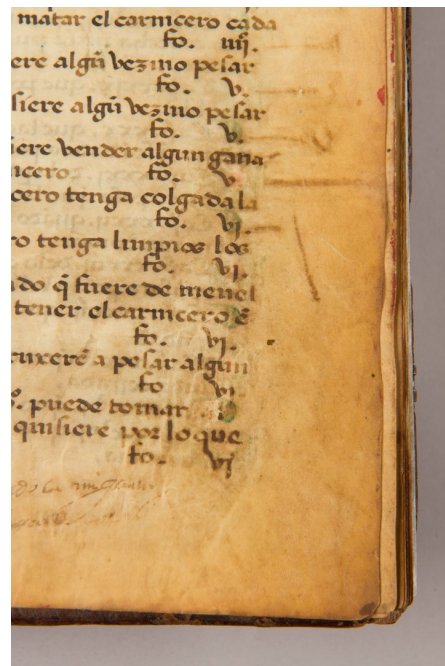 matar el carnicero cada
fo. iiij.
ere algũ vezino pesar
fo. v.
siere algũ vezino pesar
fo. v.
iere vender algun gana
nicero. fo. v
cero tenga colgada la
fo. vj.
ro tenga limpios los
fo. vj.
do q̃ fuere de menel
tener el carnicero ẽ
fo. vj.
truxerẽ a pesar algun
fo vj
puede tomar
quisiere por lo que
fo. vj